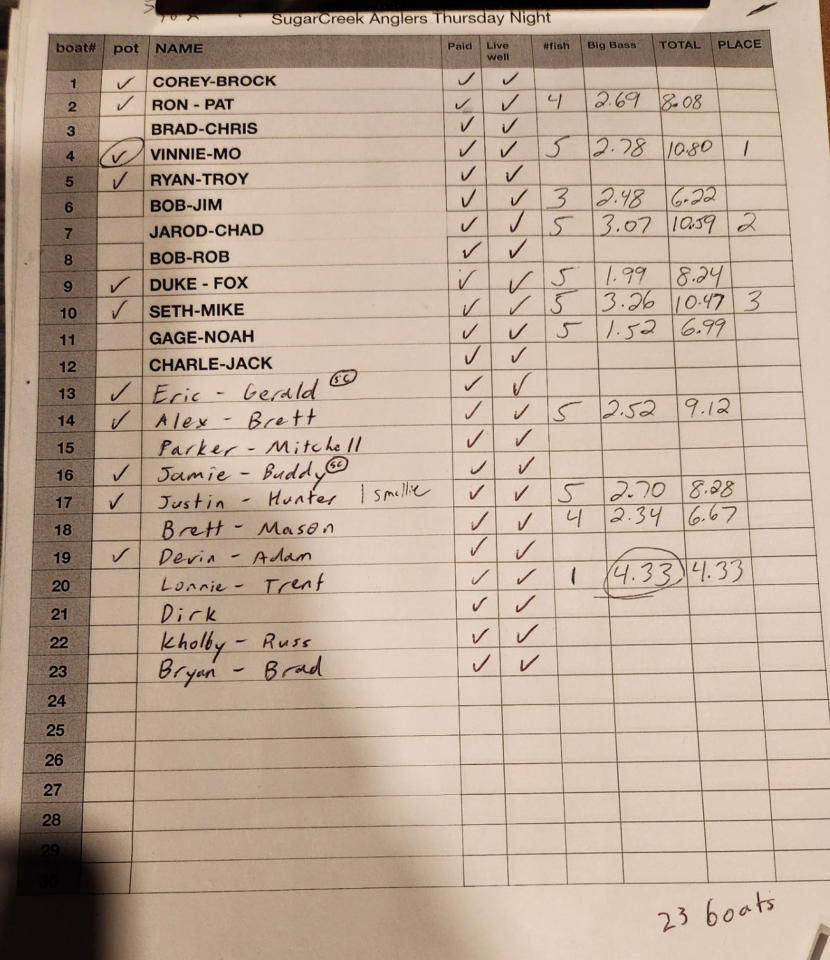 SugarCreek Anglers Thursday Night
boat# pot NAME Paid Live well #fish Big Bass TOTAL PLACE
1 ✓ COREY-BROCK ✓ ✓
2 ✓ RON - PAT ✓ ✓ 4 2.69 8.08
3 BRAD-CHRIS ✓ ✓
4 ✓ VINNIE-MO ✓ ✓ 5 2.78 10.80 1
5 ✓ RYAN-TROY ✓ ✓
6 BOB-JIM ✓ ✓ 3 2.48 6.22
7 JAROD-CHAD ✓ ✓ 5 3.07 10.59 2
8 BOB-ROB ✓ ✓
9 ✓ DUKE - FOX ✓ ✓ 5 1.99 8.24
10 ✓ SETH-MIKE ✓ ✓ 5 3.26 10.47 3
11 GAGE-NOAH ✓ ✓ 5 1.52 6.99
12 CHARLE-JACK ✓ ✓
13 ✓ Eric - Gerald SC ✓ ✓
14 ✓ Alex - Brett ✓ ✓ 5 2.52 9.12
15 Parker - Mitchell ✓ ✓
16 ✓ Jamie - Buddy SC ✓ ✓
17 ✓ Justin - Hunter 1 smallie ✓ ✓ 5 2.70 8.28
18 Brett - Mason ✓ ✓ 4 2.34 6.67
19 ✓ Devin - Adam ✓ ✓
20 Lonnie - Trent ✓ ✓ 1 4.33 4.33
21 Dirk ✓ ✓
22 Kholby - Russ ✓ ✓
23 Bryan - Brad ✓ ✓
24
25
26
27
28
29
30
23 boats